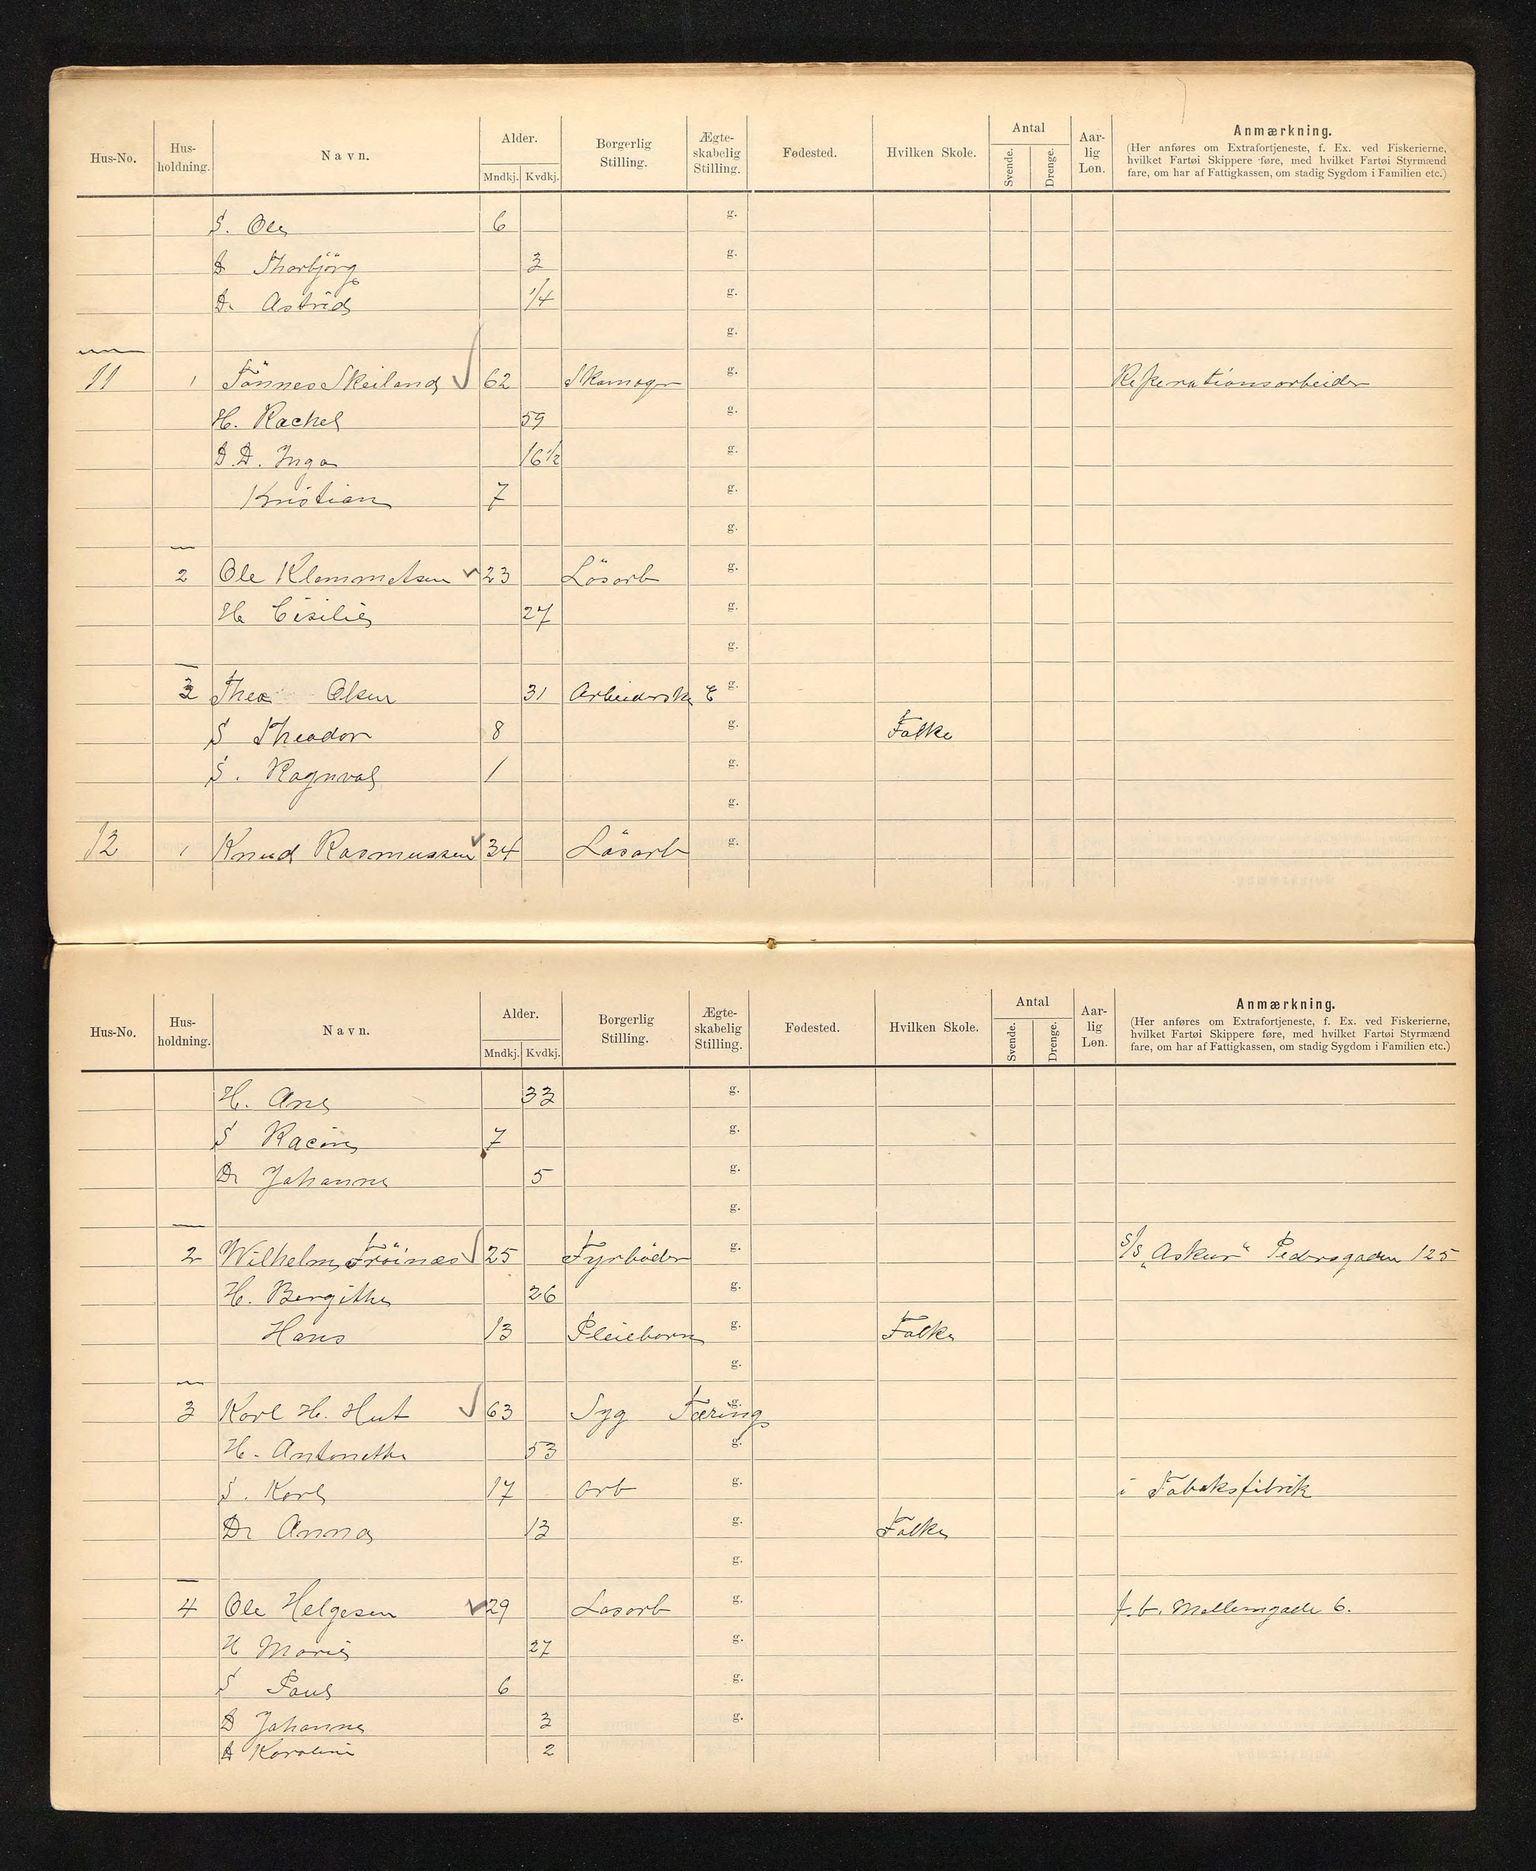 Hus-No. Hus-holdning. Navn. Alder. Mndkj. Kvdkj. Borgerlig Stilling. Ægte-skabelig Stilling. Fødested. Hvilken Skole. Antal Svende. Drenge. Aar-lig Løn. Anmærkning.
(Her anføres om Extrafortjeneste, f. Ex. ved Fiskerierne,
hvilket Fartøi Skippere føre, med hvilket Fartøi Styrmænd
fare, om har af Fattigkassen, om stadig Sygdom i Familien etc.)
S. Ole 6 g.
D Thorbjörg 3 g.
D. Astrid 1/4 g.
g.
11 1 Tönnes Skeiland 62 Skomager g. Reperationsarbeider
H. Rachel 59 g.
D.D. Inga 16 1/2 g.
Kristian 7 g.
g.
2 Ole Klemmetsen 23 Lösarb g.
H. Cisilie 27 g.
g.
3 Thea Olsen 31 Arbeiderske E g.
S Theodor 8 g. Folke
S. Ragnval 1 g.
g.
12 1 Knud Rasmussen 34 Lösarb g.
Hus-No. Hus-holdning. Navn. Alder. Mndkj. Kvdkj. Borgerlig Stilling. Ægte-skabelig Stilling. Fødested. Hvilken Skole. Antal Svende. Drenge. Aar-lig Løn. Anmærkning.
(Her anføres om Extrafortjeneste, f. Ex. ved Fiskerierne,
hvilket Fartøi Skippere føre, med hvilket Fartøi Styrmænd
fare, om har af Fattigkassen, om stadig Sygdom i Familien etc.)
H. Ane 33 g.
S 7 g.
D. Johanne 5 g.
g.
2 Wilhelm Fröinæs 25 Fyrböder g. S/S „Askur" Pedersgaden 125
H. Bergithe 26 g.
Hans 13 Pleiebarn g. Folke
g.
3 Karl H. Hut 63 Syg Tæring g.
H. Antonethe 53 g.
S. Karl 17 Arb g. i Tobaksfabrik
D. Anna 13 g. Folke
g.
4 Ole Helgesen 29 Losarb g. f. b. Mellemgade 6.
H Marie 27 g.
S Paul 6 g.
D Johanne 3 g.
D Karoline 2